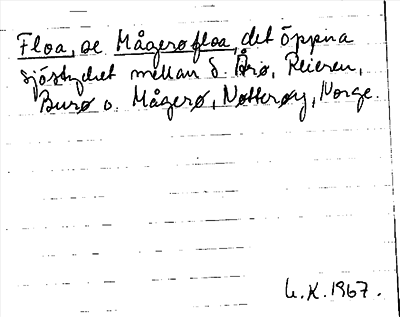 Floa, se Mågerøfloa, det öppna
sjöstycket mellan S. Årø, Reieren,
Burø o. Mågerø, Nøtterøy, Norge.
U.K. 1967.